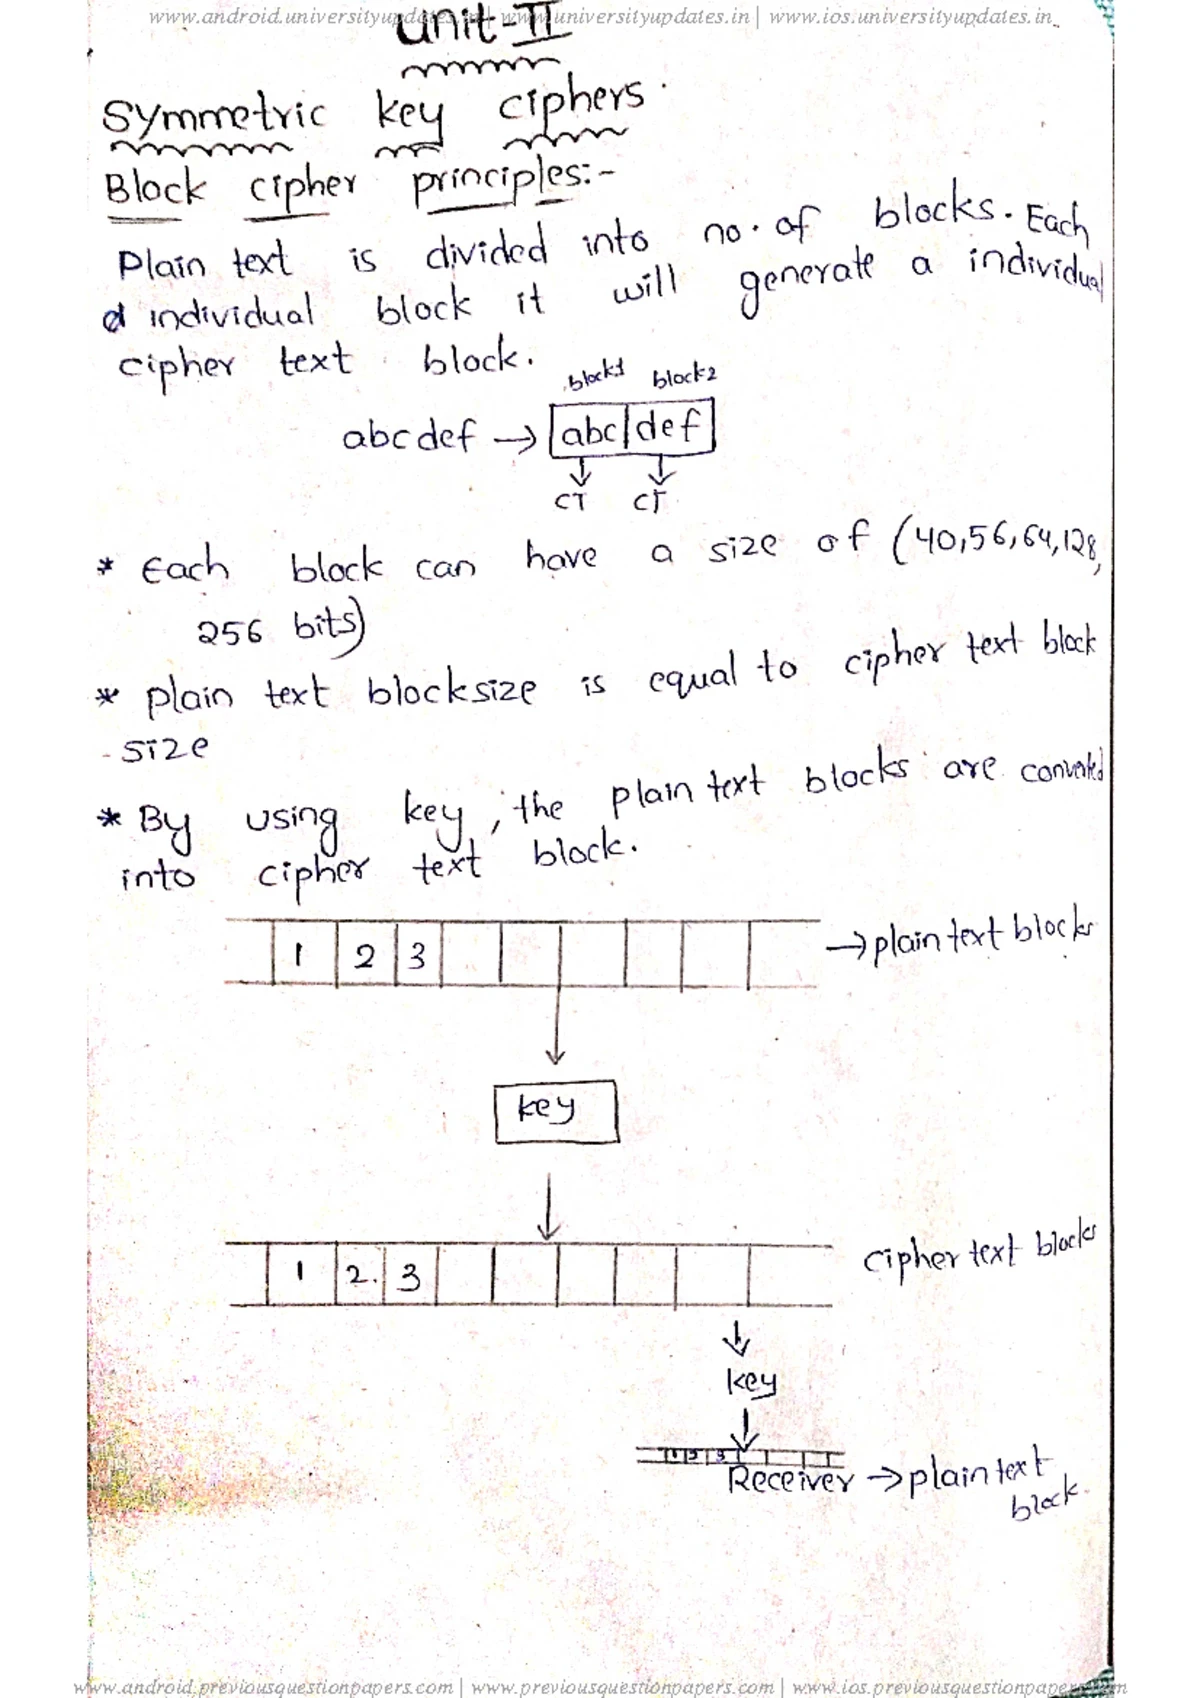 www.android.universityupdates.in | www.universityupdates.in | www.ios.universityupdates.in
Unit-II
Symmetric key ciphers.
Block cipher principles:-
Plain text is divided into no. of blocks. Each
individual block it will generate a individual
cipher text block.
block1 block2
abcdef → abc|def
CT CT
* Each block can have a size of (40,56,64,128,
256 bits)
* plain text blocksize is equal to cipher text block
size
* By using key, the plain text blocks are converted
into cipher text block.
1 2 3 → plain text blocks
key
1 2. 3 cipher text blocks
key
1 2 3
Receiver → plain text
block.
www.android.previousquestionpapers.com | www.previousquestionpapers.com | www.ios.previousquestionpapers.com